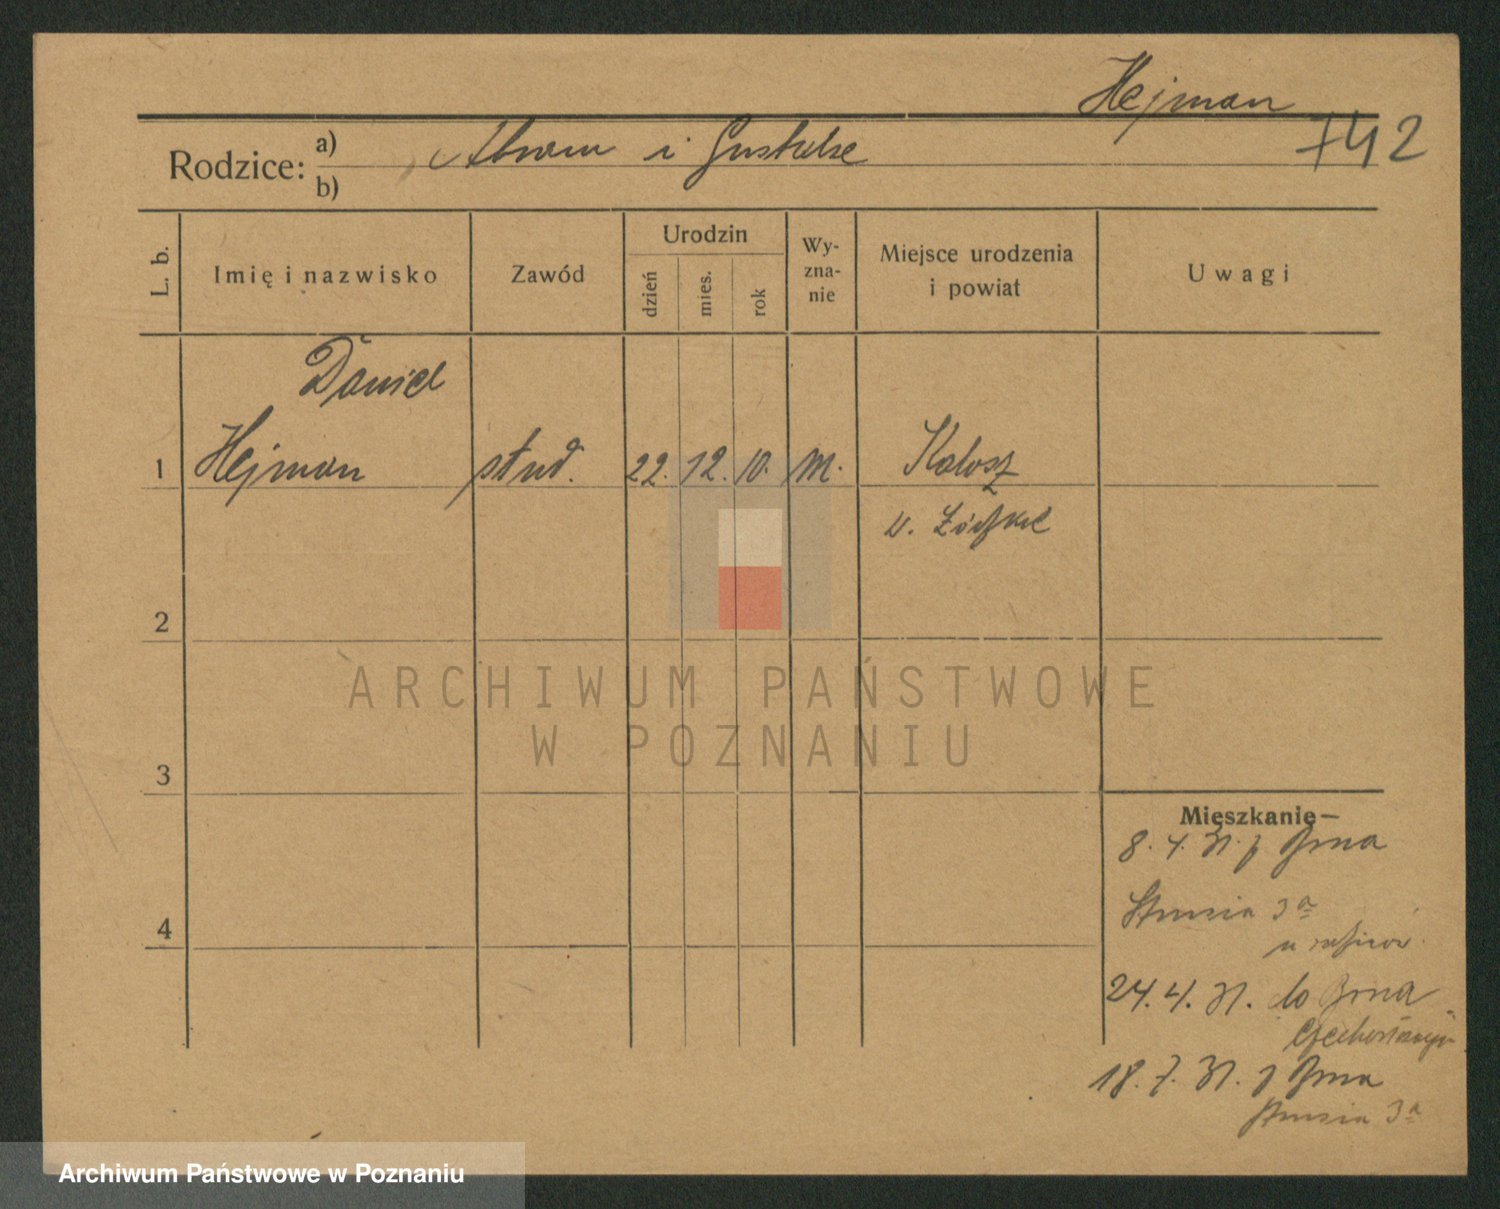 Hejman
742
Rodzice:
a) Abram i
b)
L. b.
Imię i nazwisko
Zawód
Urodzin
dzień
mies.
rok
Wy-
zna-
nie
Miejsce urodzenia
i powiat
Uwagi
Daniel
1 Hejman stud. 22. 12. 10. m.
2
3
4
Mieszkanie—
8. 4. 31. z Brna
Strusia 3a
24. 4. 31. do Brna
18. 7. 31. z Brna
Strusia 3a
ARCHIWUM PAŃSTWOWE
W POZNANIU
Archiwum Państwowe w Poznaniu